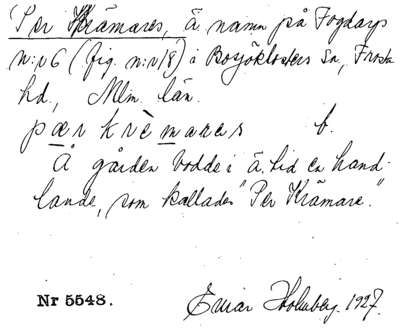 Per Krämares, ä namn på Fogdarp
n:r 6 (fig. n:r 18) i Bosjöklosters Sn., Frosta
hd., Mlm. län.
pær krèmares b.
Å gården bodde i ä. tid en hand-
lande, som kallades "Per Krämare."
Nr 5548. Einar Holmberg. 1927.